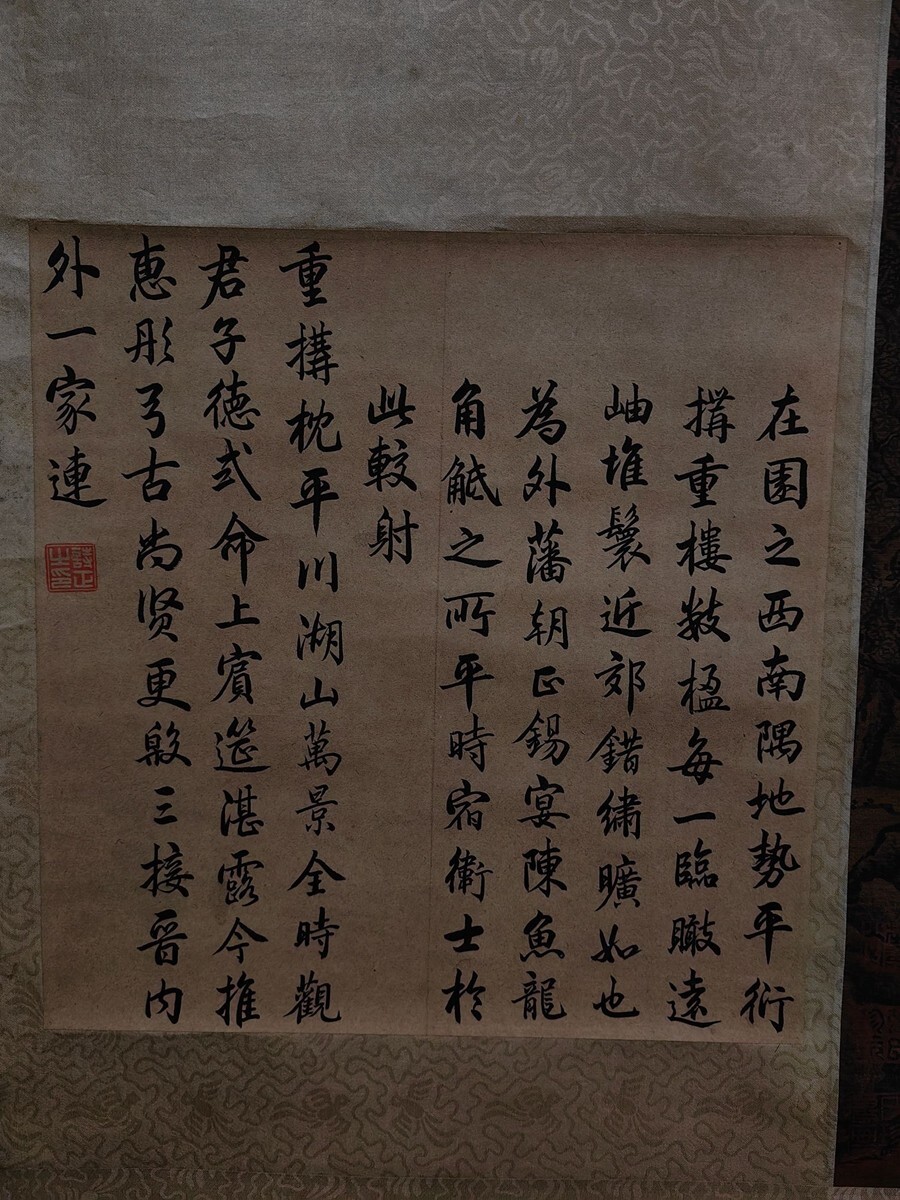 在園之西南隅地勢平衍
搆重樓數楹每一臨瞰遠
岫堆鬟近郊錯繡曠如也
為外藩朝正錫宴陳魚龍
角觝之所平時宿衛士於
此較射
重搆枕平川湖山萬景全時觀
君子德式命上賓筵湛露今推
恵彤弓古尚贤更殷三接晉內
外一家連
詩正之印